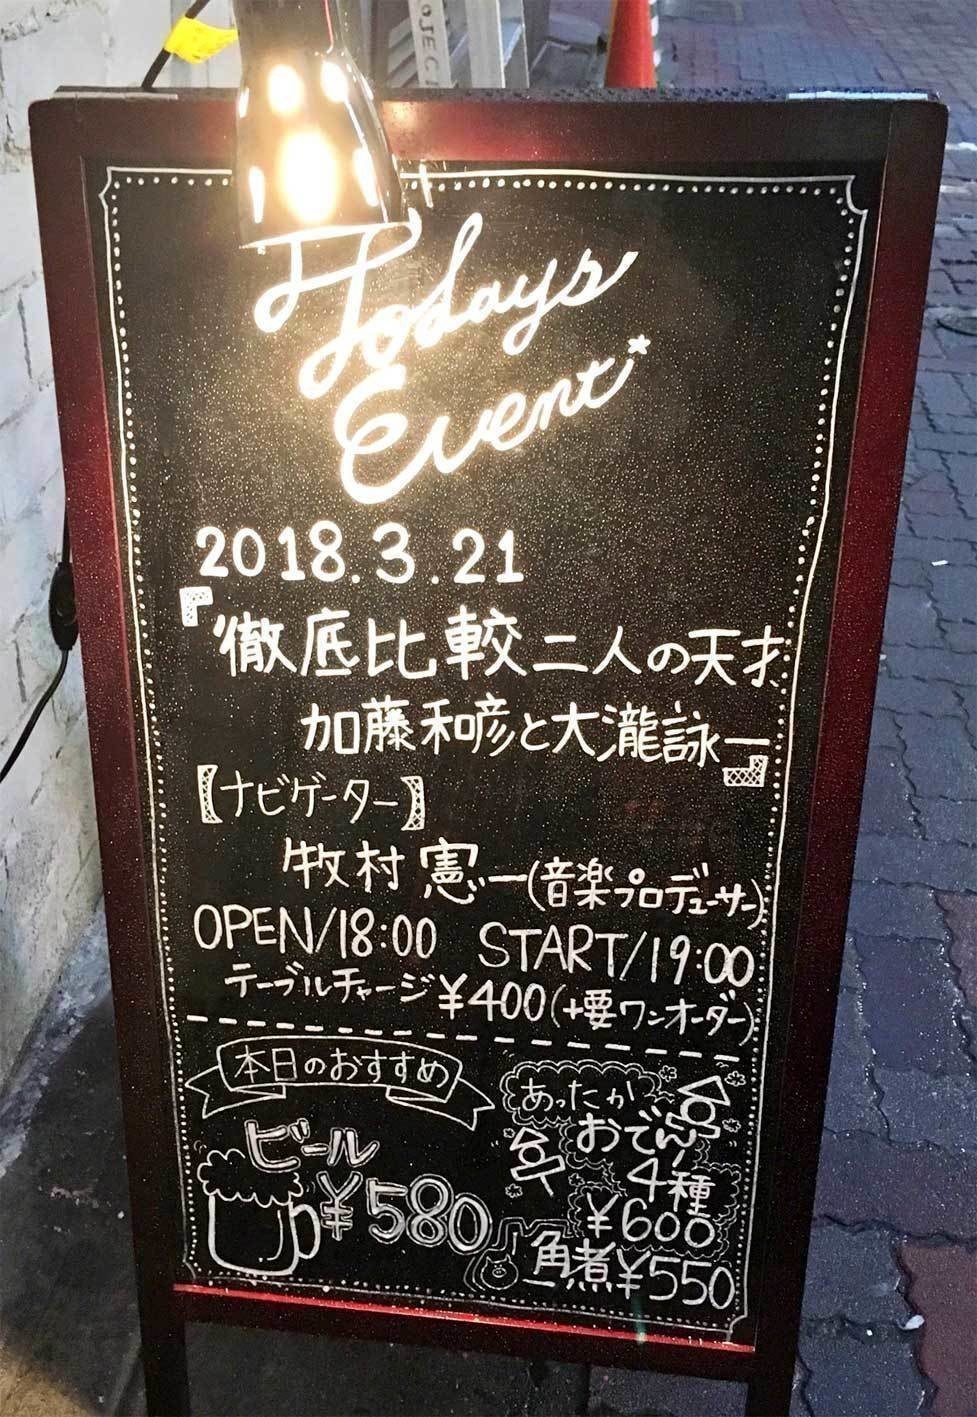 Todays
Event
2018.3.21
『徹底比較二人の天才
加藤和彦と大瀧詠一』
【ナビゲーター】
牧村憲一(音楽プロデューサー)
OPEN/18:00 START/19:00
テーブルチャージ¥400(+要ワンオーダー)
本日のおすすめ
ビール
¥580
あったか
おでん
4種
¥600
角煮¥550